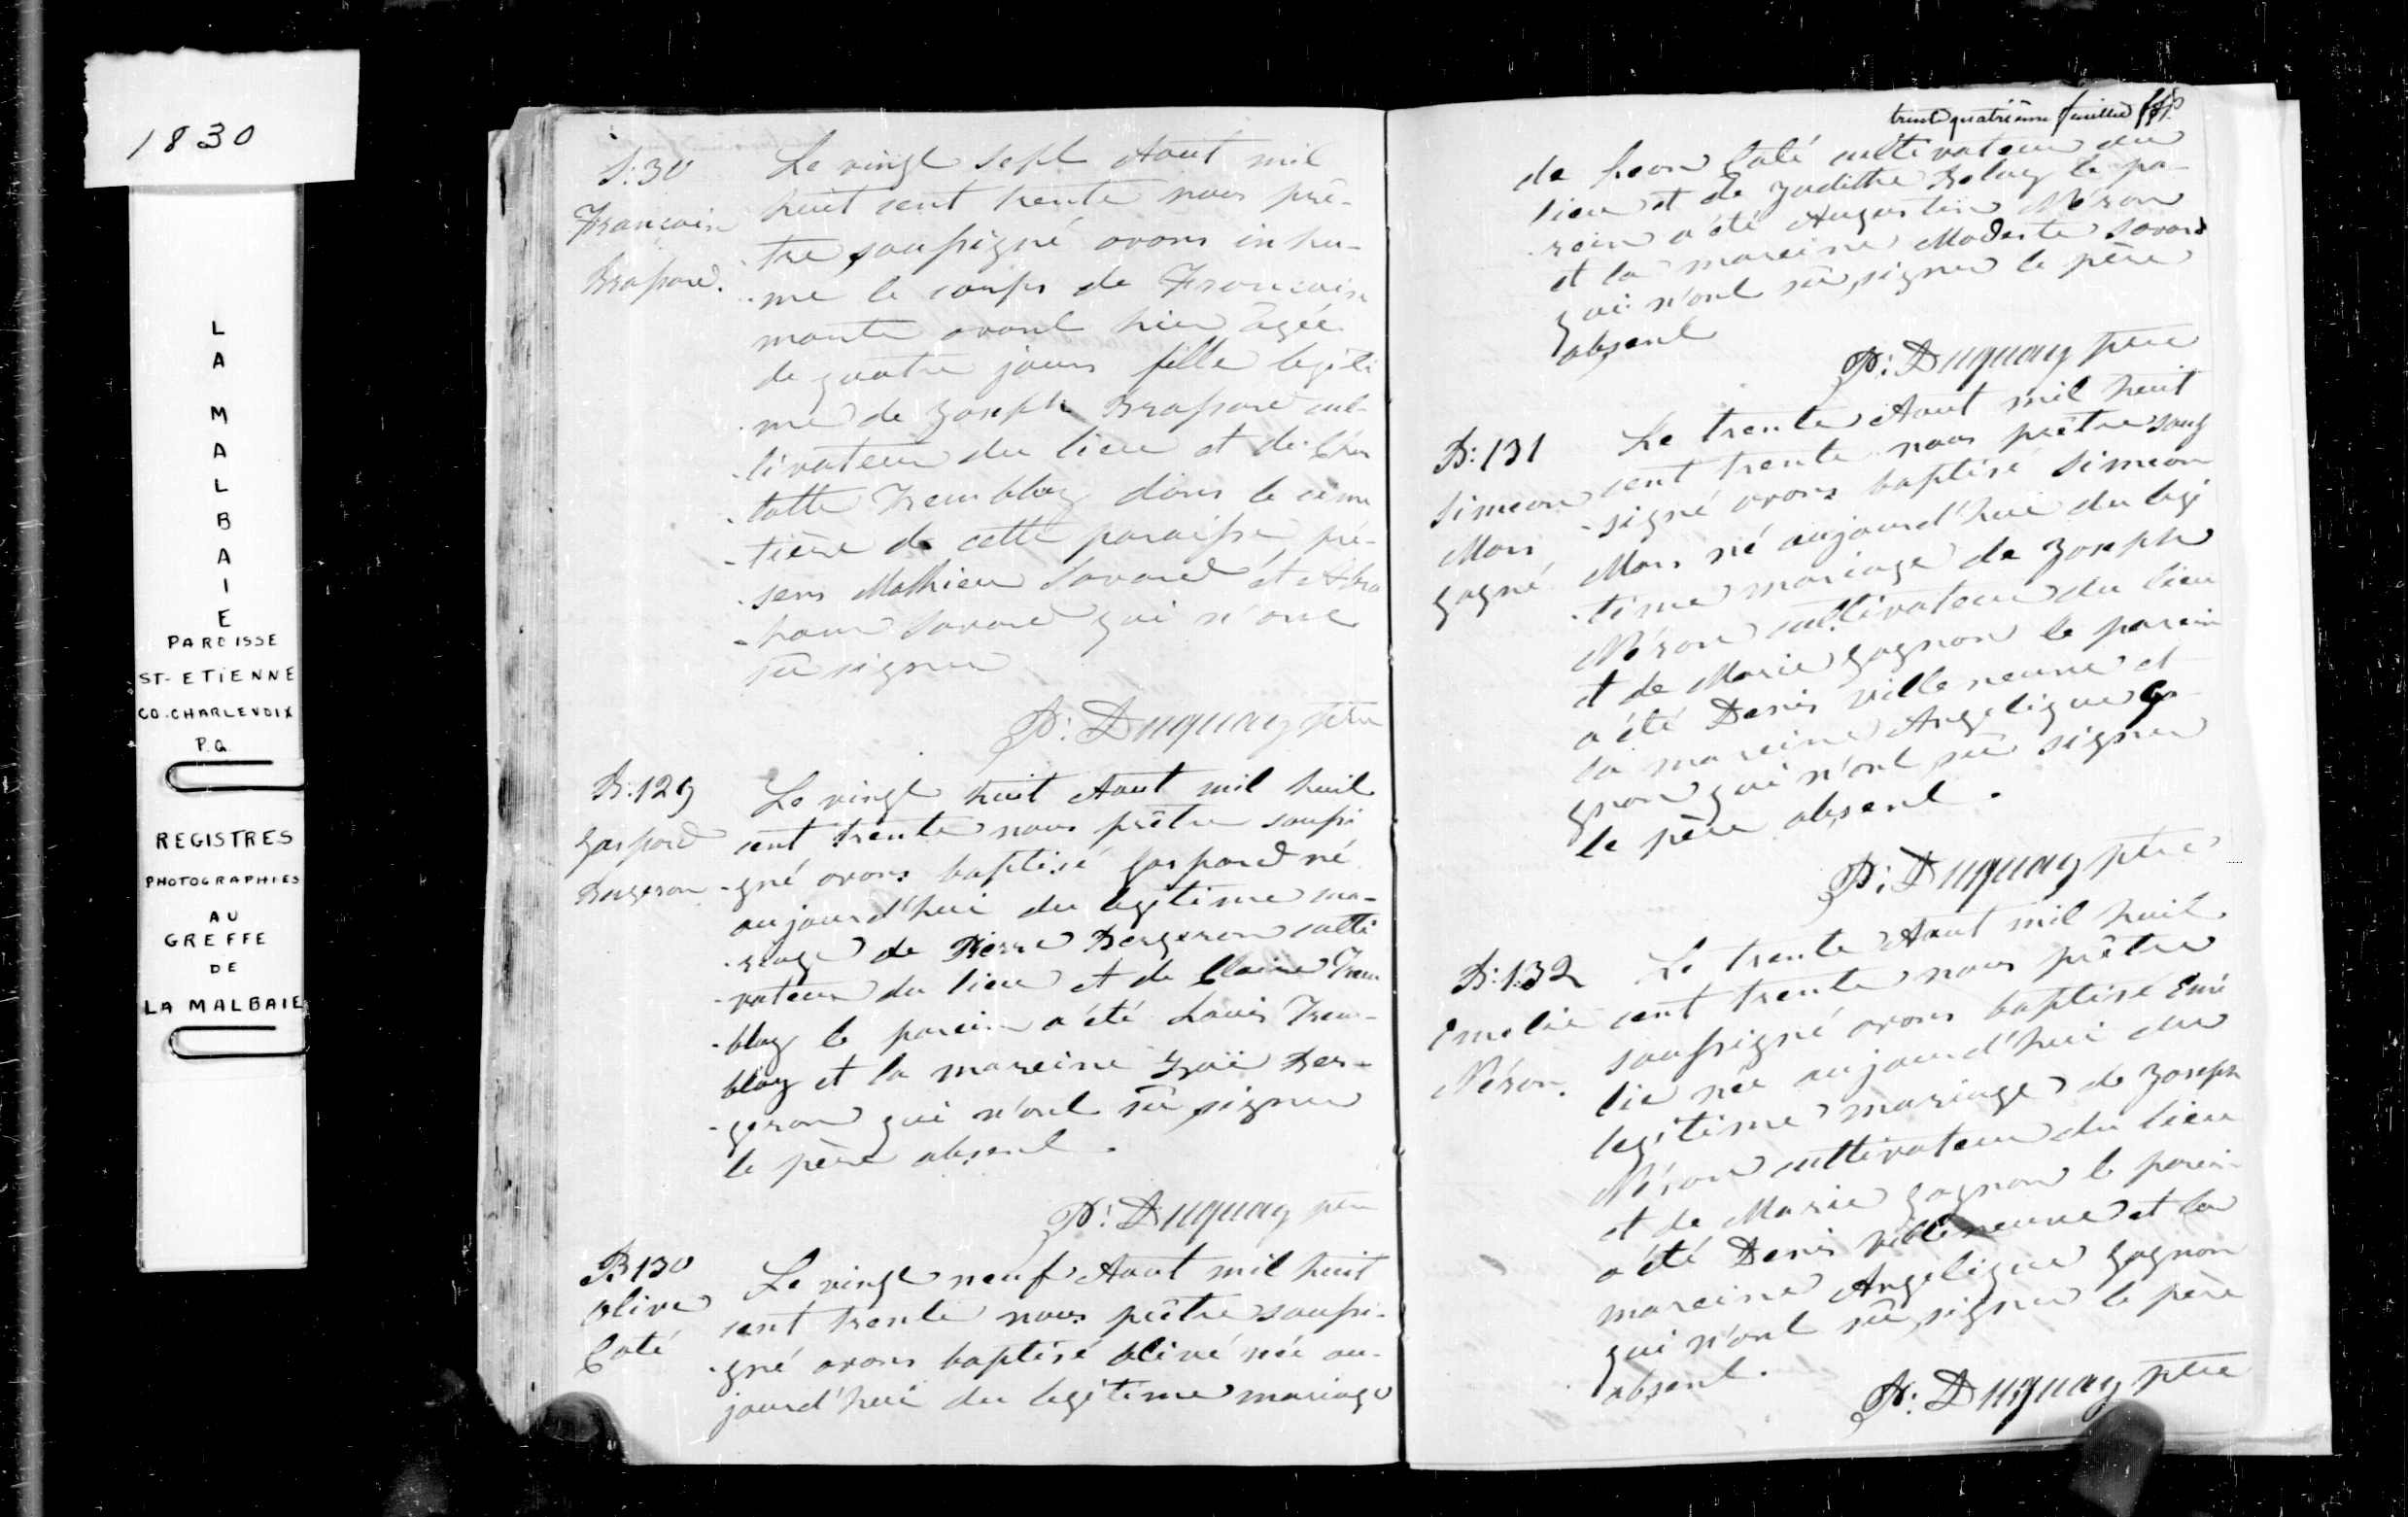 1830
LA MALBAIE
PAROISSE
ST-ETIENNE
CO. CHARLEVOIX
P.Q.
REGISTRES
PHOTOGRAPHIES
AU
GREFFE
DE
LA MALBAIE
S: 30
Françoise
Brassard.
Le vingt sept Aout mil
huit cent trente nous prê-
-tre soussigné avons inhu-
-mé le corps de Françoise
morte avant hier âgée
de quatre jours fille legiti
-me de Joseph Brassard cul-
-tivateur du lieu et de Char
-lotte Tremblay dans le cime
-tière de cette paroisse pré-
-sens Mathieu Savard et Abra
-ham Savard qui n'ont
sû signer
P: Duguay ptre
B: 129
Gaspard
Bergeron
Le vingt huit Aout mil huit
cent trente nous prêtre soussi
-gné avons baptisé Gaspard né
aujourd'hui du legitime ma-
-riage de Pierre Bergeron culti
-vateur du lieu et de Claire Trem
-blay le parein a été Louis Trem-
blay et la mareine Zoë Ber-
-geron qui n'ont sû signer
le père absent.
P: Duguay ptre
B 130
Olive
Coté
Le vingt neuf Aout mil huit
cent trente nous prêtre soussi-
-gné avons baptisé Olive née au-
jourd'hui du legitime mariage
trente quatrième feuillet
de Leon Coté cultivateur du
lieu et de Judithe Belay le pa-
-rein a été Augustin Néron
et la mareine Modeste Savard
qui n'ont sû signer le père
absent
P: Duguay ptre
B: 131
Simeon
Mars
Gagné
Le trente Aout mil huit
cent trente nous prêtre sous
-signé avons baptisé Simeon
Mars né aujourd'hui du legi
-time mariage de Joseph
Néron cultivateur du lieu
et de Marie Gagnon le parein
a été Denis villeneuve et
la mareine Angelique Ga-
gnon qui n'ont sû signer
le père absent.
P: Duguay ptre
B: 132
Emelie
Néron.
Le trente Aout mil huit
cent trente nous prêtre
soussigné avons baptisé Emé
lie née aujourd'hui du
legitime mariage de Joseph
Néron cultivateur du lieu
et de Marie Gagnon le parein
a été Denis villeneuve et la
mareine Angelique Gagnon
qui n'ont sû signer le père
absent.
P: Duguay ptre